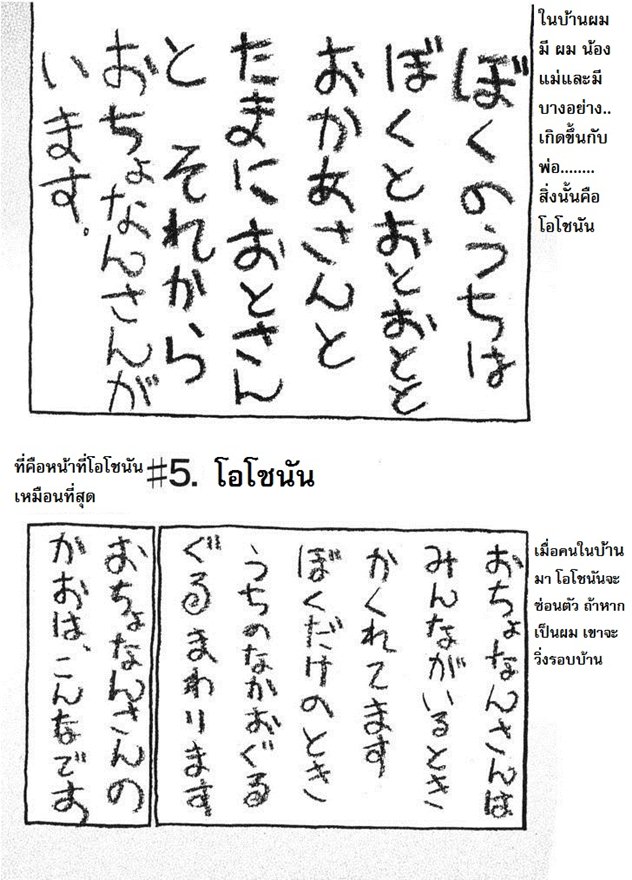 ぼくのうちは
ぼくとおとおとと
おかあさんと
たまにおとさん
と それから
おちょなんさんが
います。
ในบ้านผม
มี ผม น้อง
แม่และมี
บางอย่าง..
เกิดขึ้นกับ
พ่อ........
สิ่งนั้นคือ
โอโชนัน
#5. โอโชนัน
おちょなんさんは
みんながいるとき
かくれてます
ぼくだけのとき
うちのなかおぐる
ぐるまわります
เมื่อคนในบ้าน
มา โอโชนันจะ
ซ่อนตัว ถ้าหาก
เป็นผม เขาจะ
วิ่งรอบบ้าน
おちょなんさんの
かおは、こんなです
ที่คือหน้าที่โอโชนัน
เหมือนที่สุด